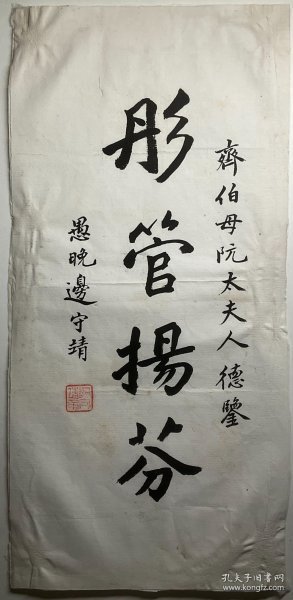 齊伯母阮太夫人德鑒
彤管揚芬
愚晚邊守靖
孔夫子旧书网
www.kongfz.com